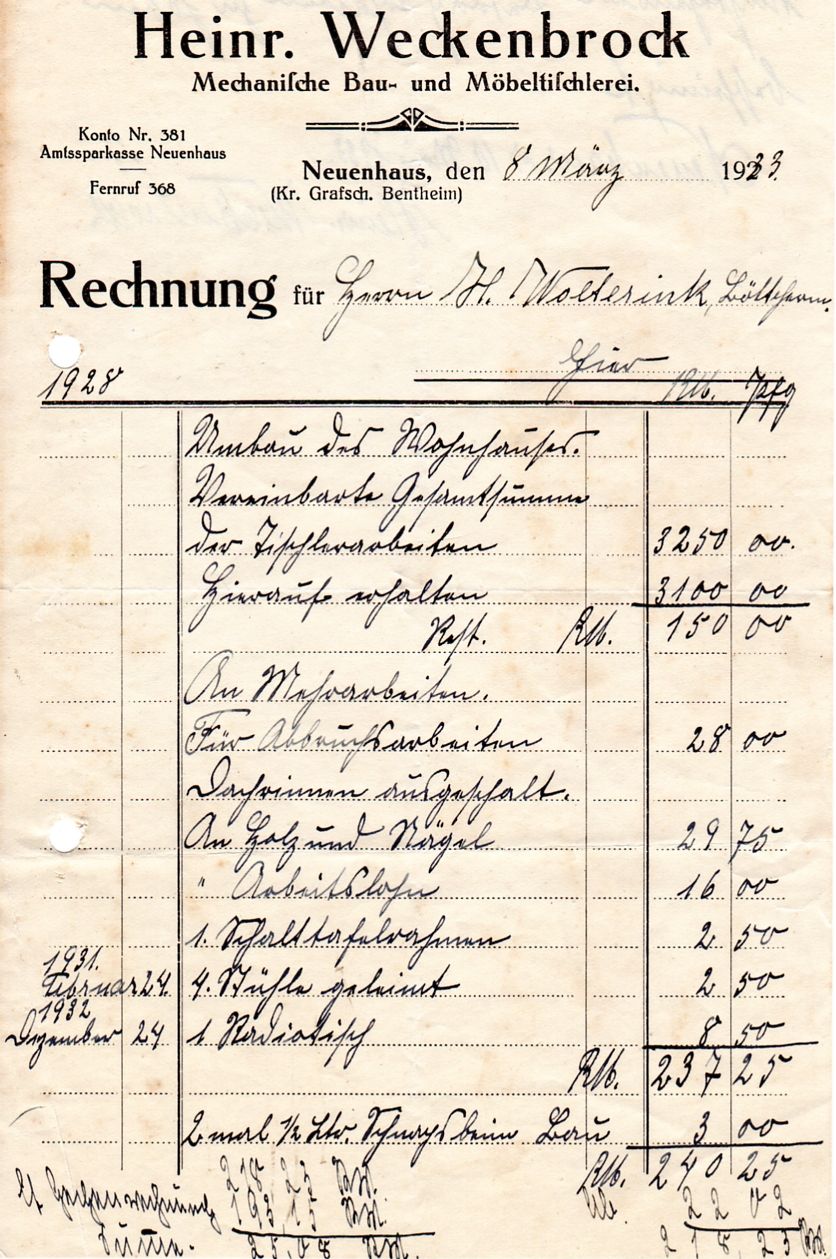 Heinr. Weckenbrock
Mechaniſche Bau- und Möbeltiſchlerei.
Konto Nr. 381
Amtssparkasse Neuenhaus
Fernruf 368
Neuenhaus, den 8 März 1933.
(Kr. Grafsch. Bentheim)
Rechnung für Herrn H. Wolterink, Böttcherm.
Hier
1928 RM. Pfg
Umbau des Wohnhauses.
Vereinbarte Gesamtsumme
der Tischlerarbeiten 3250 00.
Hierauf erhalten 3100 00
Rest. RM. 150 00
An Mehrarbeiten.
Für Abbruchsarbeiten 28 00
Dachrinnen ausgeschalt.
An Holz und Nägel 29 75
" Arbeitslohn 16 00
1. Schalttafelrahmen 2 50
1931.
Februar 24. 4. Stühle geleimt 2 50
1932
Dezember 24 1 Radiotisch 8 50
RM. 237 25
2 mal ½ Ltr. Schnaps beim Bau 3 00
RM. 240 25
218,23 RM. 22 02
lt Gegenrechnung 193,15 RM. 218 23 RM
Summe. 25,08 RM.